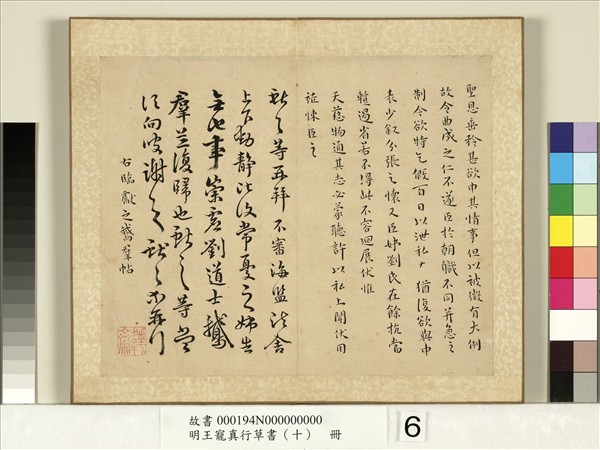 聖恩垂矜甚欲申其情事但以被徵有大例
故令曲成之仁不遂臣於朝職不同並急之
制今欲特乞假百日以泄私
猶復欲與中
表少叙分張之懷又臣姊劉氏在餘杭當
暫過省若不得此不容迴展伏惟
天慈物通其志必蒙聽許以私上聞伏用
悚臣之
獻之等再拜不審海鹽諸舍
上下動靜比復常憂之姊告
無他事崇虛劉道士鵝
羣並復歸也獻之等當
須向彼謝之獻之等再行
右臨獻之鵝羣帖
故書 000194N000000000
明王寵真行草書（十） 冊
6